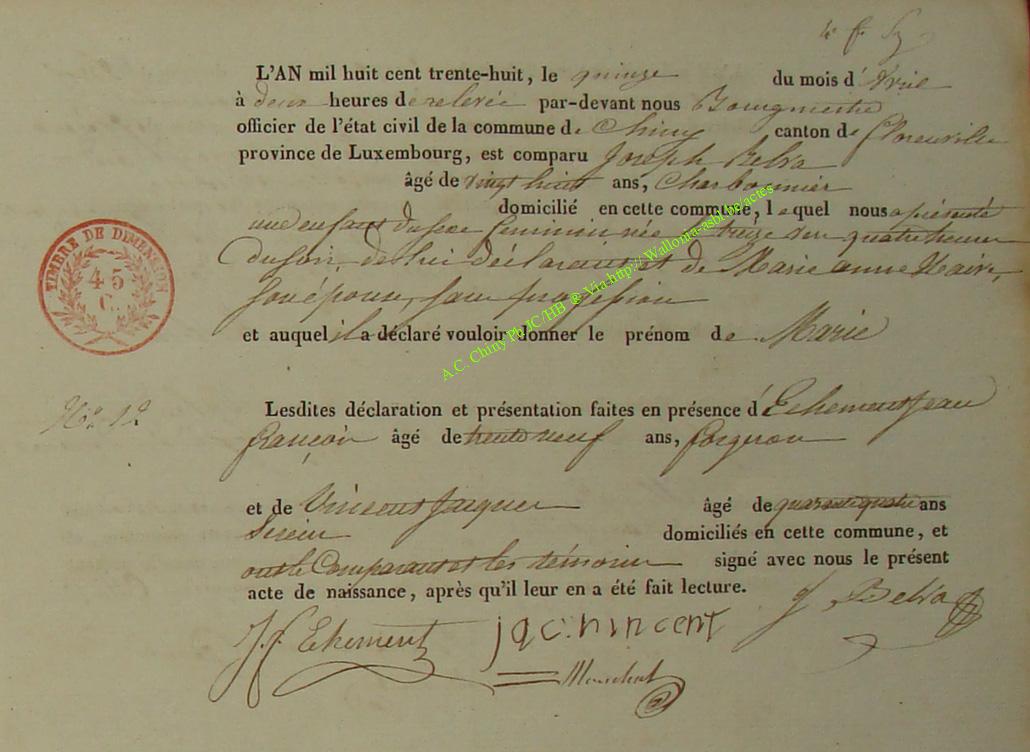 L'AN mil huit cent trente-huit, le quinze du mois d'Avril
à deux heures de relevée par-devant nous Bourgmestre
officier de l'état civil de la commune de Chiny canton de Florenville
province de Luxembourg, est comparu Joseph Belva
âgé de vingt huit ans, Charbonnier
domicilié en cette commune, lequel nous a présenté
une enfant du sexe feminin née le treize du quatre heures
Du soir, de lui déclarant et de Marie anne
son épouse, sans profession
et auquel il a déclaré vouloir donner le prénom de Marie
TIMBRE DE DIMENSION
45
C.
A.C. Chiny Ph JC/HB ® Via http://Wallonia-asbl.be/actes
No. 12
Lesdites déclaration et présentation faites en présence d'Echement Jean
françois âgé de trente neuf ans, forgeron
et de Vincent Jacques âgé de quarante quatre ans
domiciliés en cette commune, et
ont le Comparant et les témoins signé avec nous le présent
acte de naissance, après qu'il leur en a été fait lecture.
J Belva
J.f. Echement jac. vincent